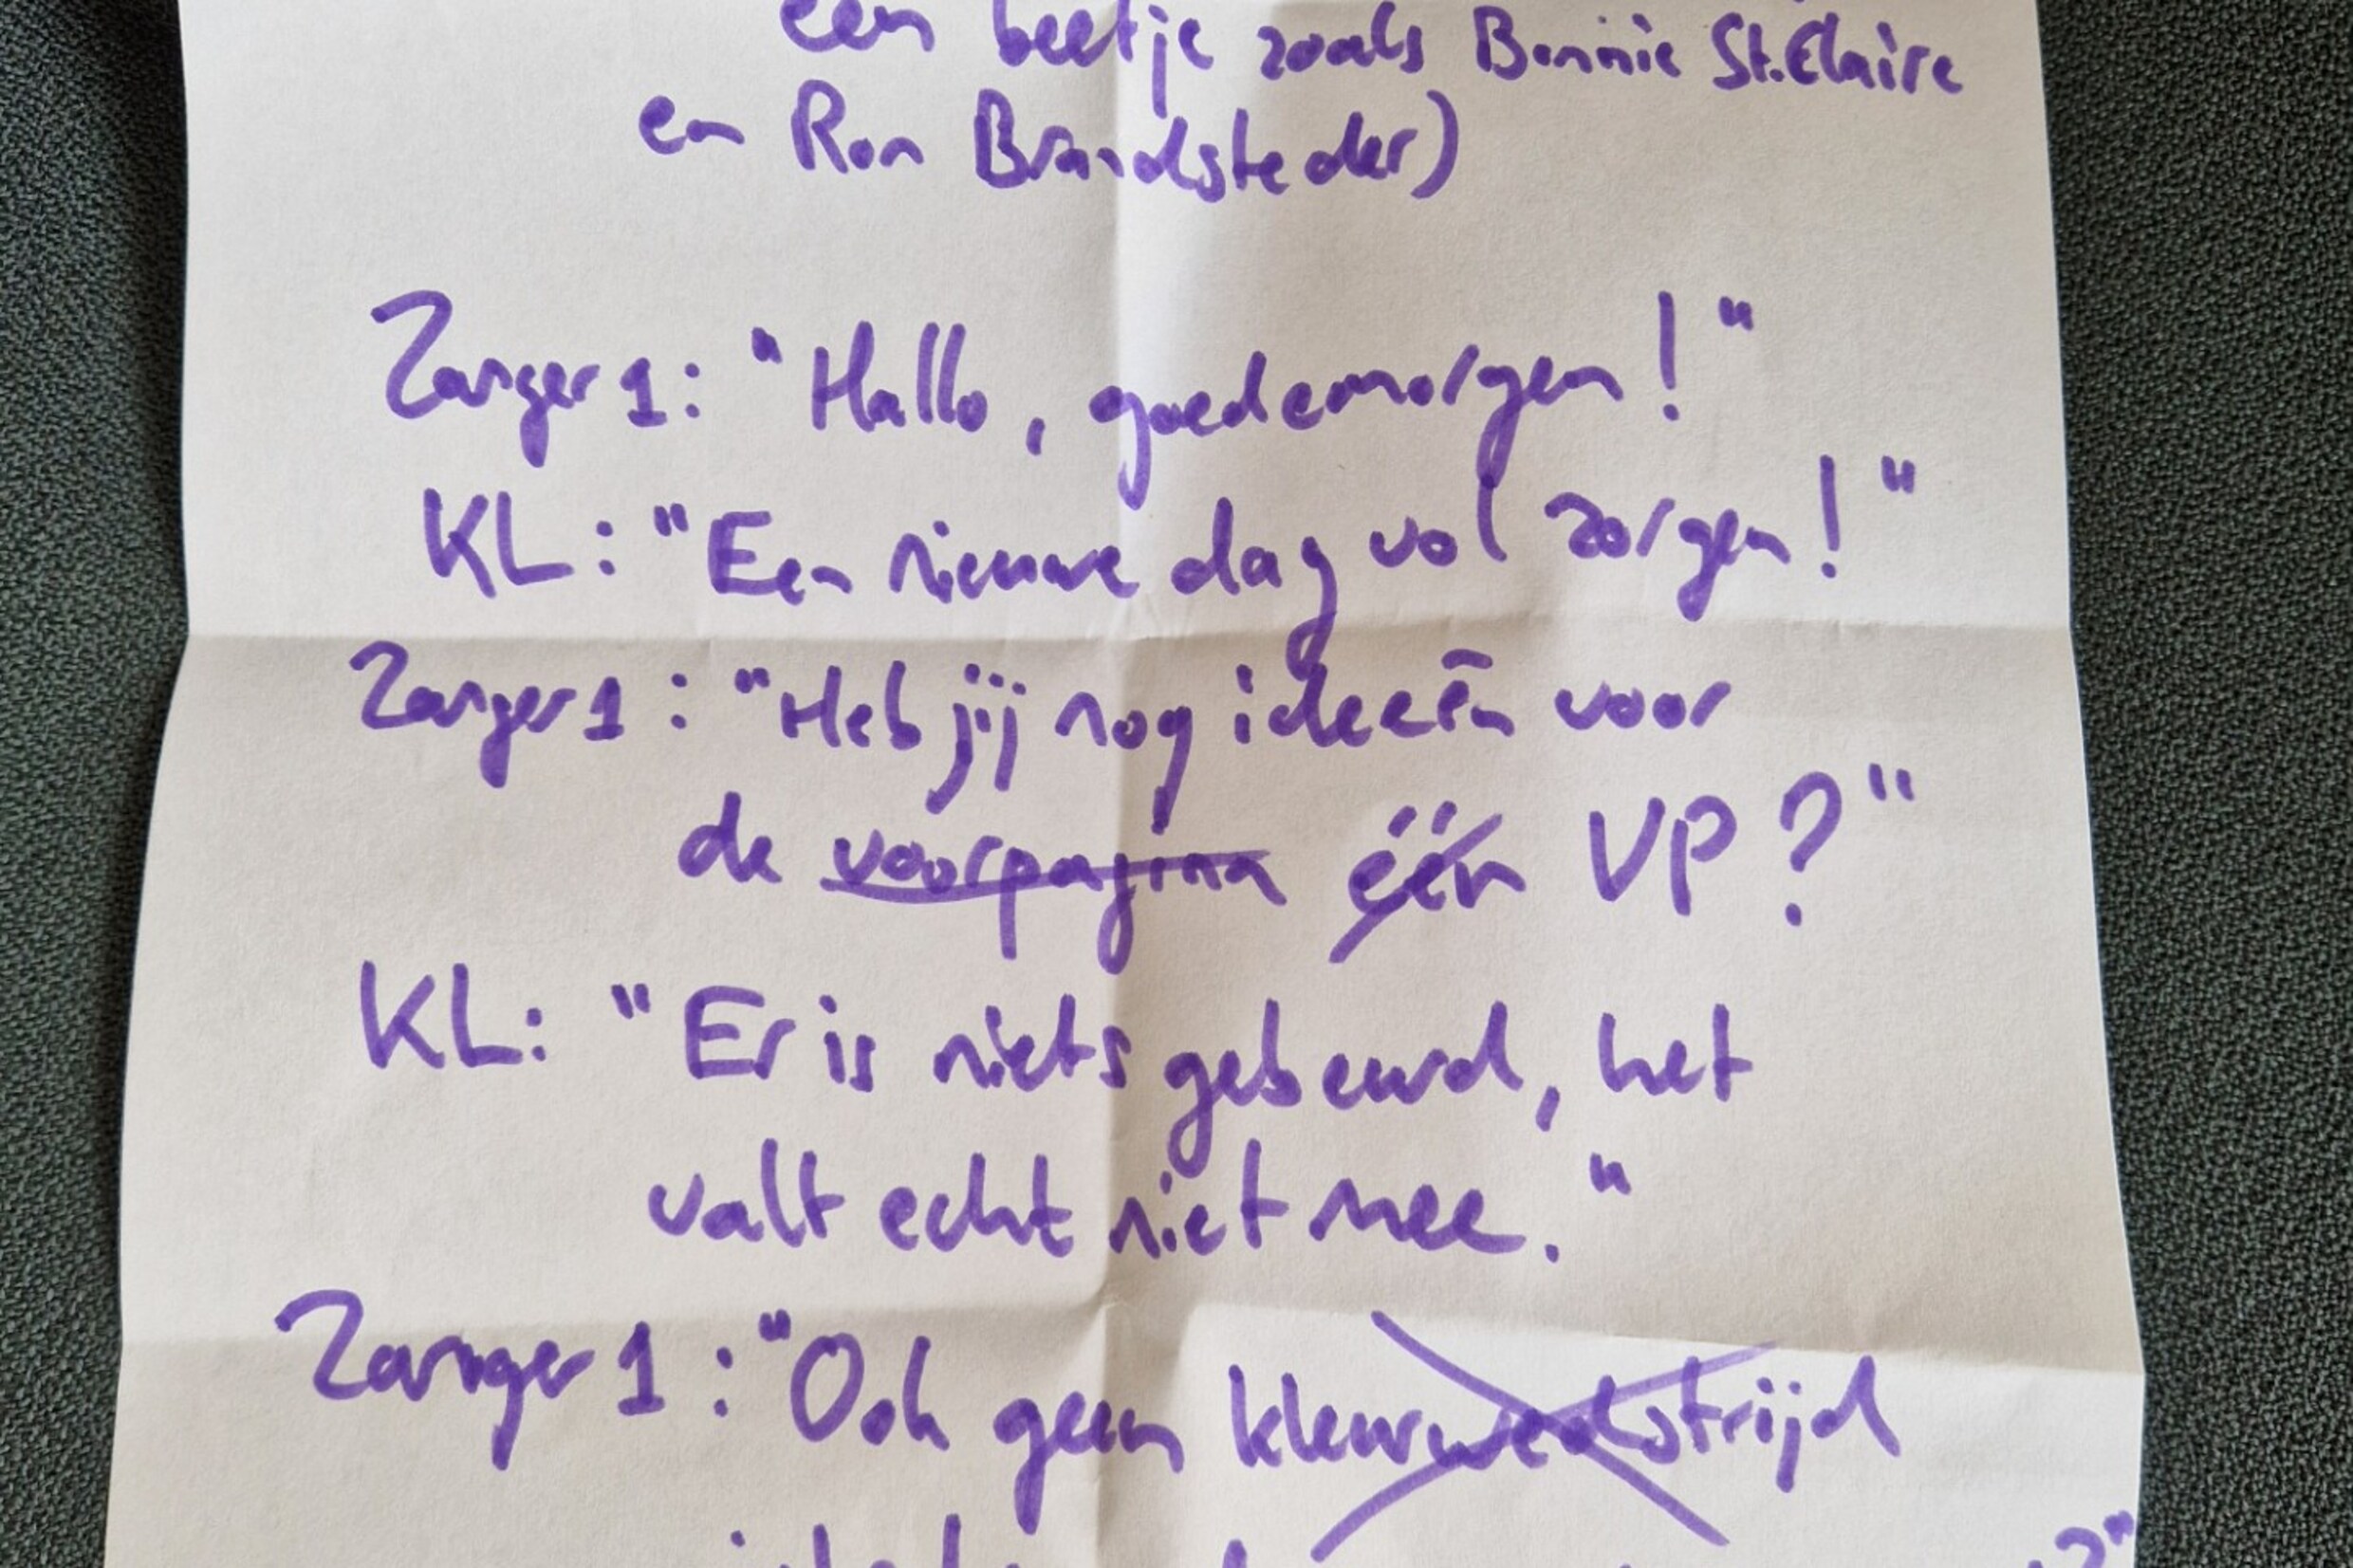 een beetje zoals Bonnie St. Claire
en Ron Brandsteder)
Zanger 1: "Hallo, goedemorgen!"
KL: "Een nieuwe dag vol zorgen!"
Zanger 1: "Heb jij nog ideeën voor
de voorpagina één VP?"
KL: "Er is niets gebeurd, het
valt echt niet mee."
Zanger 1: "Ook geen kleurwedstrijd
?"